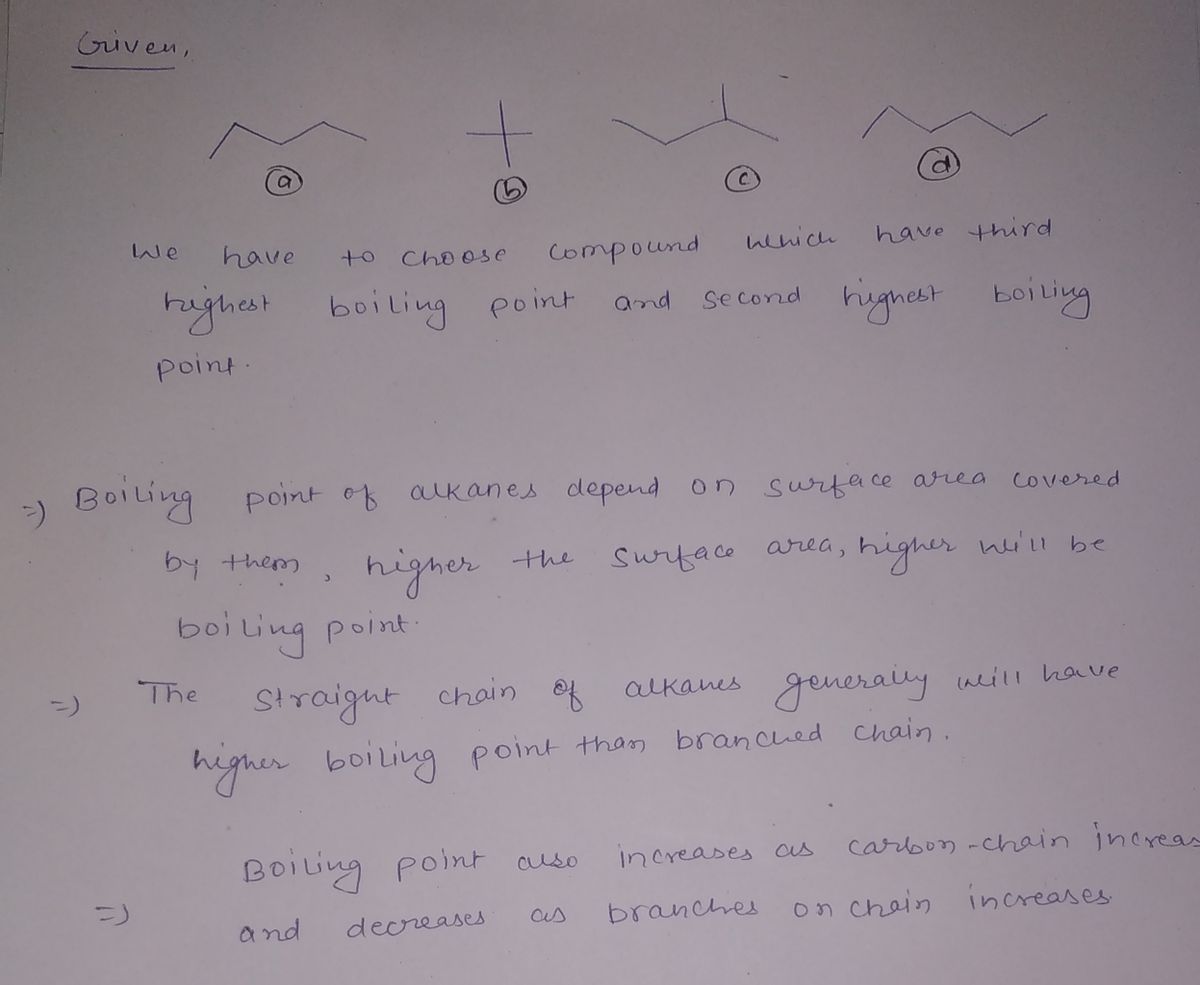 Given,
a b c d
We have to choose compound which have third
highest boiling point and second highest boiling
point.
=) Boiling point of alkanes depend on surface area covered
by them, higher the surface area, higher will be
boiling point.
=) The straight chain of alkanes generally will have
higher boiling point than branched chain.
Boiling point also increases as carbon-chain increas
=) and decreases as branches on chain increases.